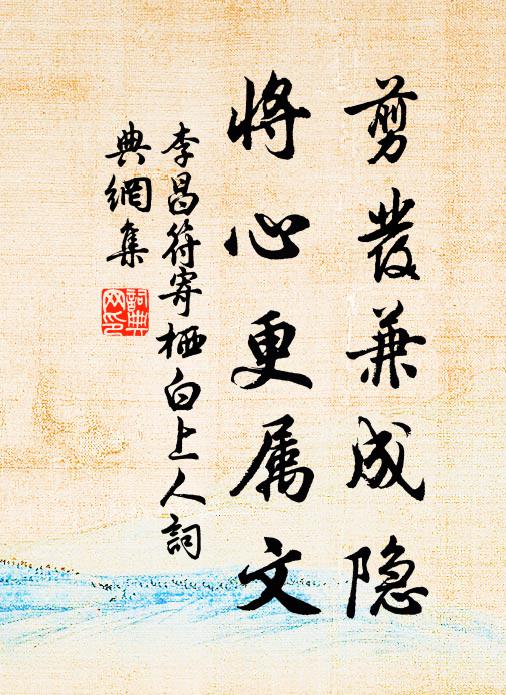 剪發兼成隐
将心更属文
李昌符寄栖白上人詞
典網集
詞典
网印